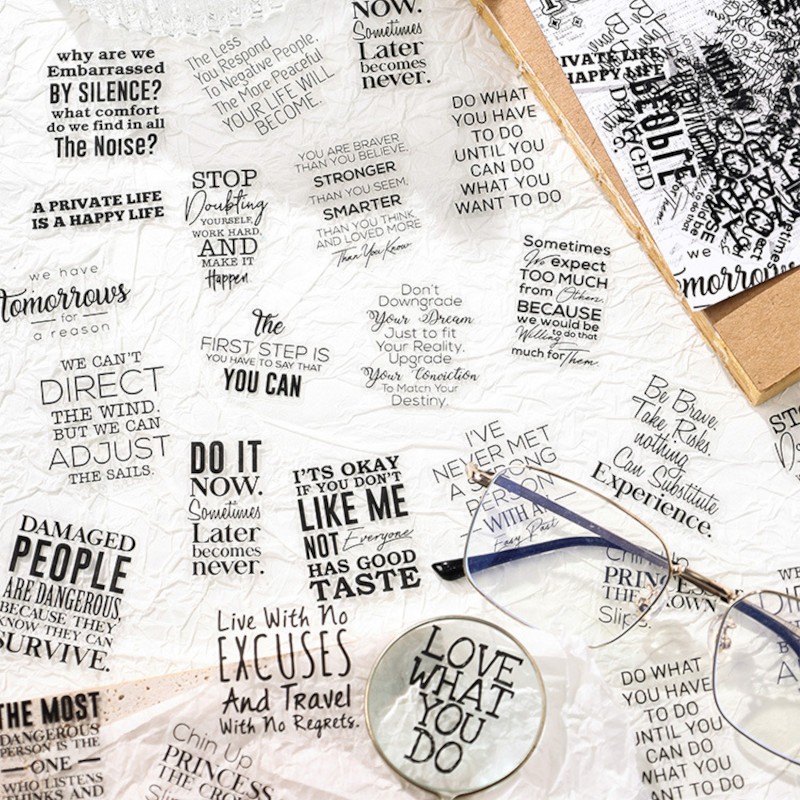 why are we
Embarrassed
BY SILENCE?
what comfort
do we find in all
The Noise?
The Less
You Respond
To Negative People.
The More Peaceful
YOUR LIFE WILL
BECOME.
NOW.
Sometimes
Later
becomes
never.
DO WHAT
YOU HAVE
TO DO
UNTIL YOU
CAN DO
WHAT YOU
WANT TO DO
PRIVATE LIFE
HAPPY LIFE
PEOPLE
tomorrows
A PRIVATE LIFE
IS A HAPPY LIFE
STOP
Doubting
YOURSELF,
WORK HARD,
AND
MAKE IT
Happen.
YOU ARE BRAVER
THAN YOU BELIEVE,
STRONGER
THAN YOU SEEM,
SMARTER
THAN YOU THINK,
AND LOVED MORE
Than You Know
Sometimes
We expect
TOO MUCH
from Others,
BECAUSE
we would be
Willing to do that
much for Them.
we have
tomorrows
for
a reason
the
FIRST STEP IS
YOU HAVE TO SAY THAT
YOU CAN
Don't
Downgrade
Your Dream
Just to fit
Your Reality.
Upgrade
Your Conviction
To Match Your
Destiny.
WE CAN'T
DIRECT
THE WIND.
BUT WE CAN
ADJUST
THE SAILS.
DO IT
NOW.
Sometimes
Later
becomes
never.
I'TS OKAY
IF YOU DON'T
LIKE ME
NOT Everyone
HAS GOOD
TASTE
I'VE
NEVER MET
A STRONG
PERSON
WITH AN
Easy Past
Be Brave.
Take Risks.
nothing
Can Substitute
Experience.
DAMAGED
PEOPLE
ARE DANGEROUS,
BECAUSE THEY
KNOW THEY CAN
SURVIVE.
Live With No
EXCUSES
And Travel
With No Regrets.
LOVE
WHAT
YOU
DO
Chin Up
PRINCESS
THE CROWN
Slips
DO WHAT
YOU HAVE
TO DO
UNTIL YOU
CAN DO
WHAT YOU
WANT TO DO
THE MOST
DANGEROUS
PERSON IS THE
ONE
WHO LISTENS
THINKS AND
Chin Up
PRINCESS
THE CROWN